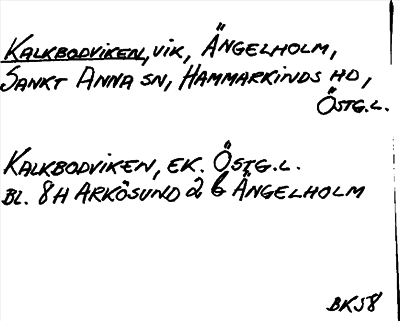 KALKBODVIKEN, VIK, ÄNGELHOLM,
SANKT ANNA SN, HAMMARKINDS HD,
ÖSTG.L.
KALKBODVIKEN, EK. ÖSTG.L.
BL. 8H ARKÖSUND 2 6 ÄNGELHOLM
BK58